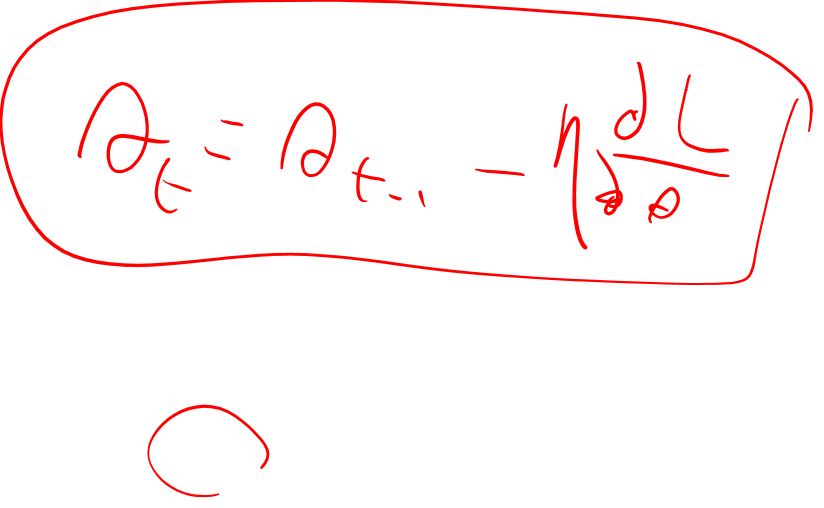 θ_t = θ_{t-1} - η dL/dθ